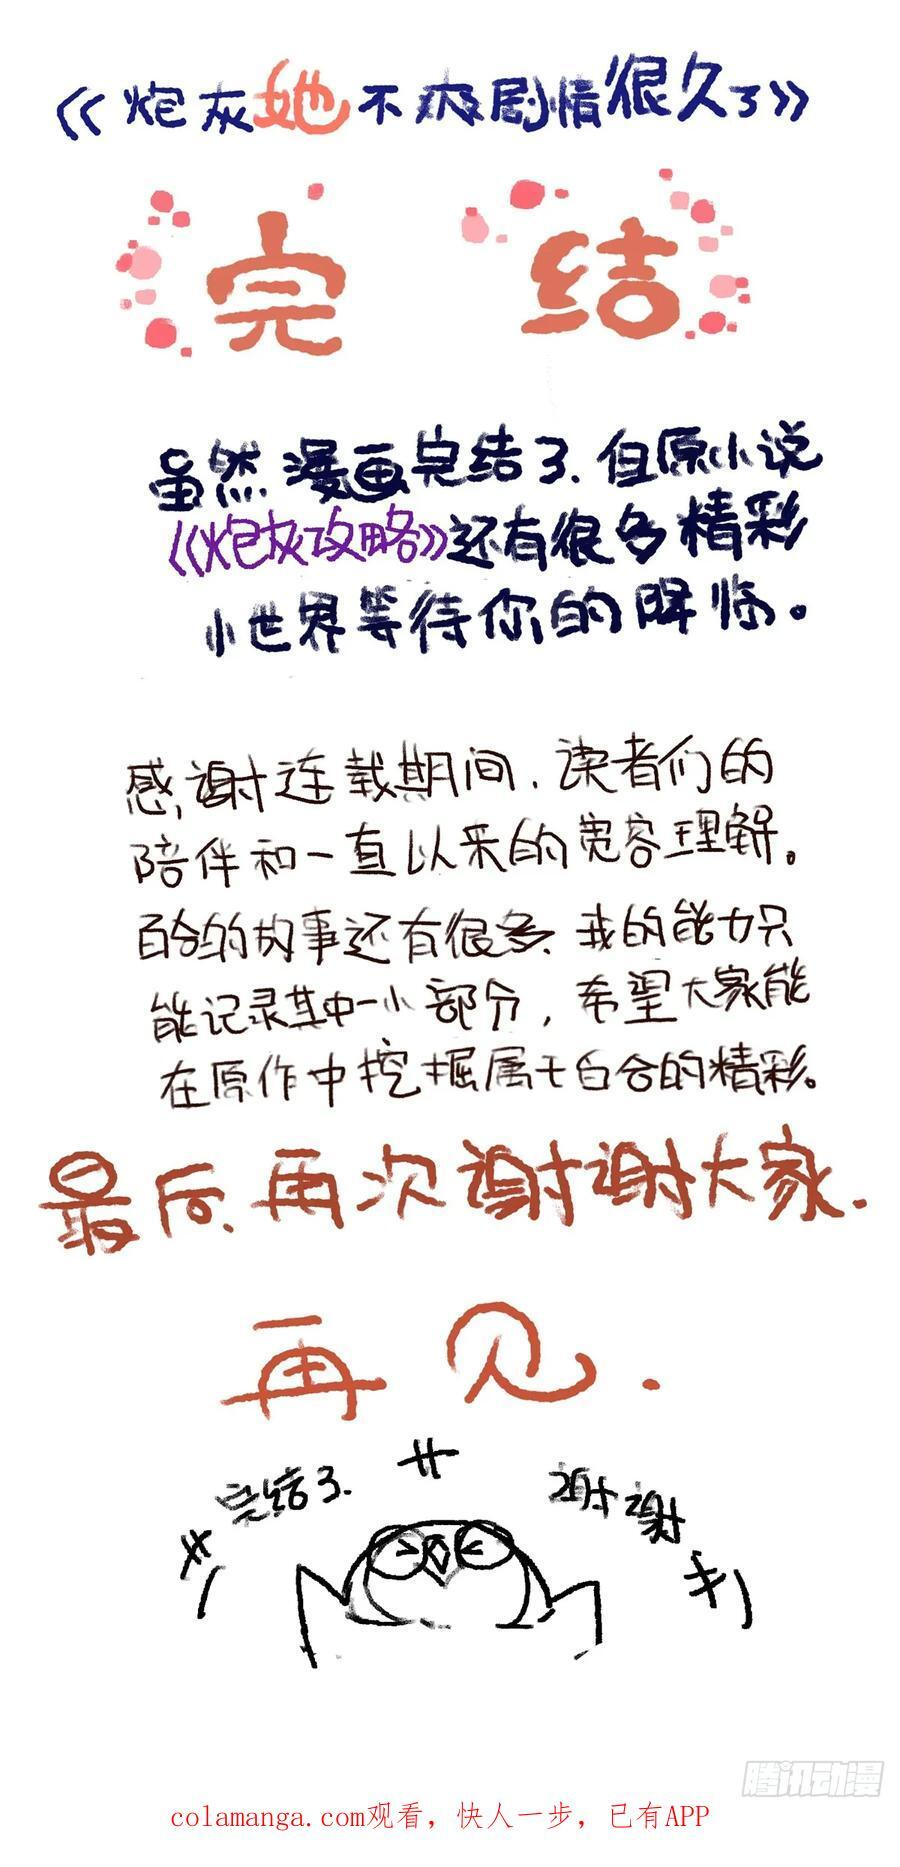 《炮灰她不爽剧情很久了》
完 结
虽然漫画完结了、但原小说
《炮灰攻略》还有很多精彩
小世界等待你的降临。
感谢连载期间、读者们的
陪伴和一直以来的宽容理解。
百合的故事还有很多、我的能力只
能记录其中一小部分，希望大家能
在原作中挖掘属于百合的精彩。
最后、再次谢谢大家.
再见.
完结了.
谢谢
腾讯动漫
colamanga.com观看，快人一步，已有APP